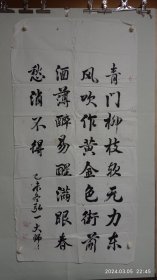 青门柳枝软无力东
风吹作黄金色街前
酒薄醉易醒满眼春
愁消不得
未冬弘一大师
2024/03/05 22:45